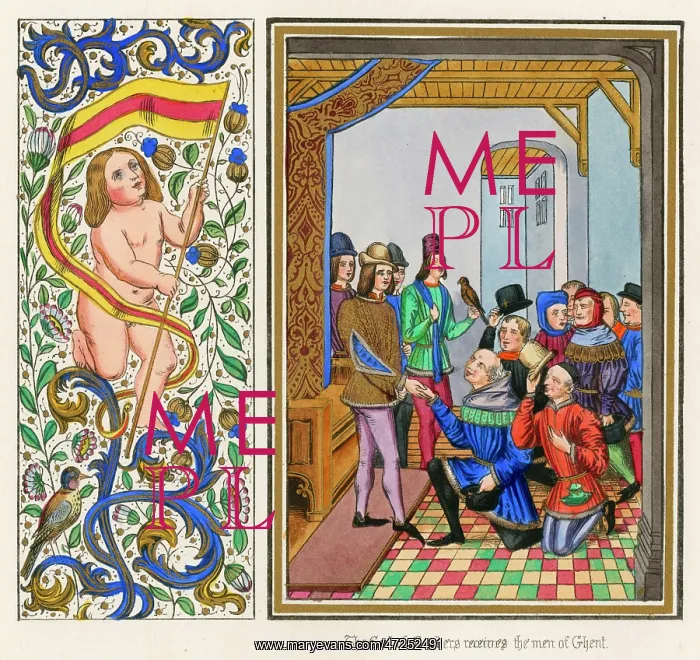 ME
PL
ME
PL
receives the men of Ghent.
www.maryevans.com/47252491